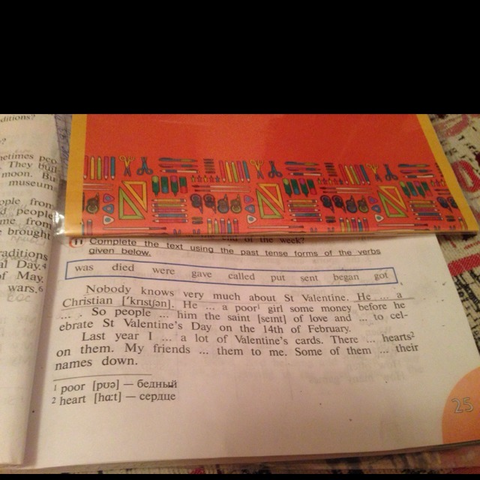 ditions?
?
metimes peo
They buil
moon. Bu
museum
ople from
d people
me from
brought
raditions
al Day.⁴
of May.
wars,⁶
in the week?
11 Complete the text using the past tense forms of the verbs
given below.
was died were gave called put sent began got
Nobody knows very much about St Valentine. He ... a
Christian ['krɪstʃən]. He ... a poor¹ girl some money before he
... . So people ... him the saint [seɪnt] of love and ... to cel-
ebrate St Valentine's Day on the 14th of February.
Last year I ... a lot of Valentine's cards. There ... hearts²
on them. My friends ... them to me. Some of them ... their
names down.
¹ poor [pʊə] — бедный
² heart [hɑ:t] — сердце
25